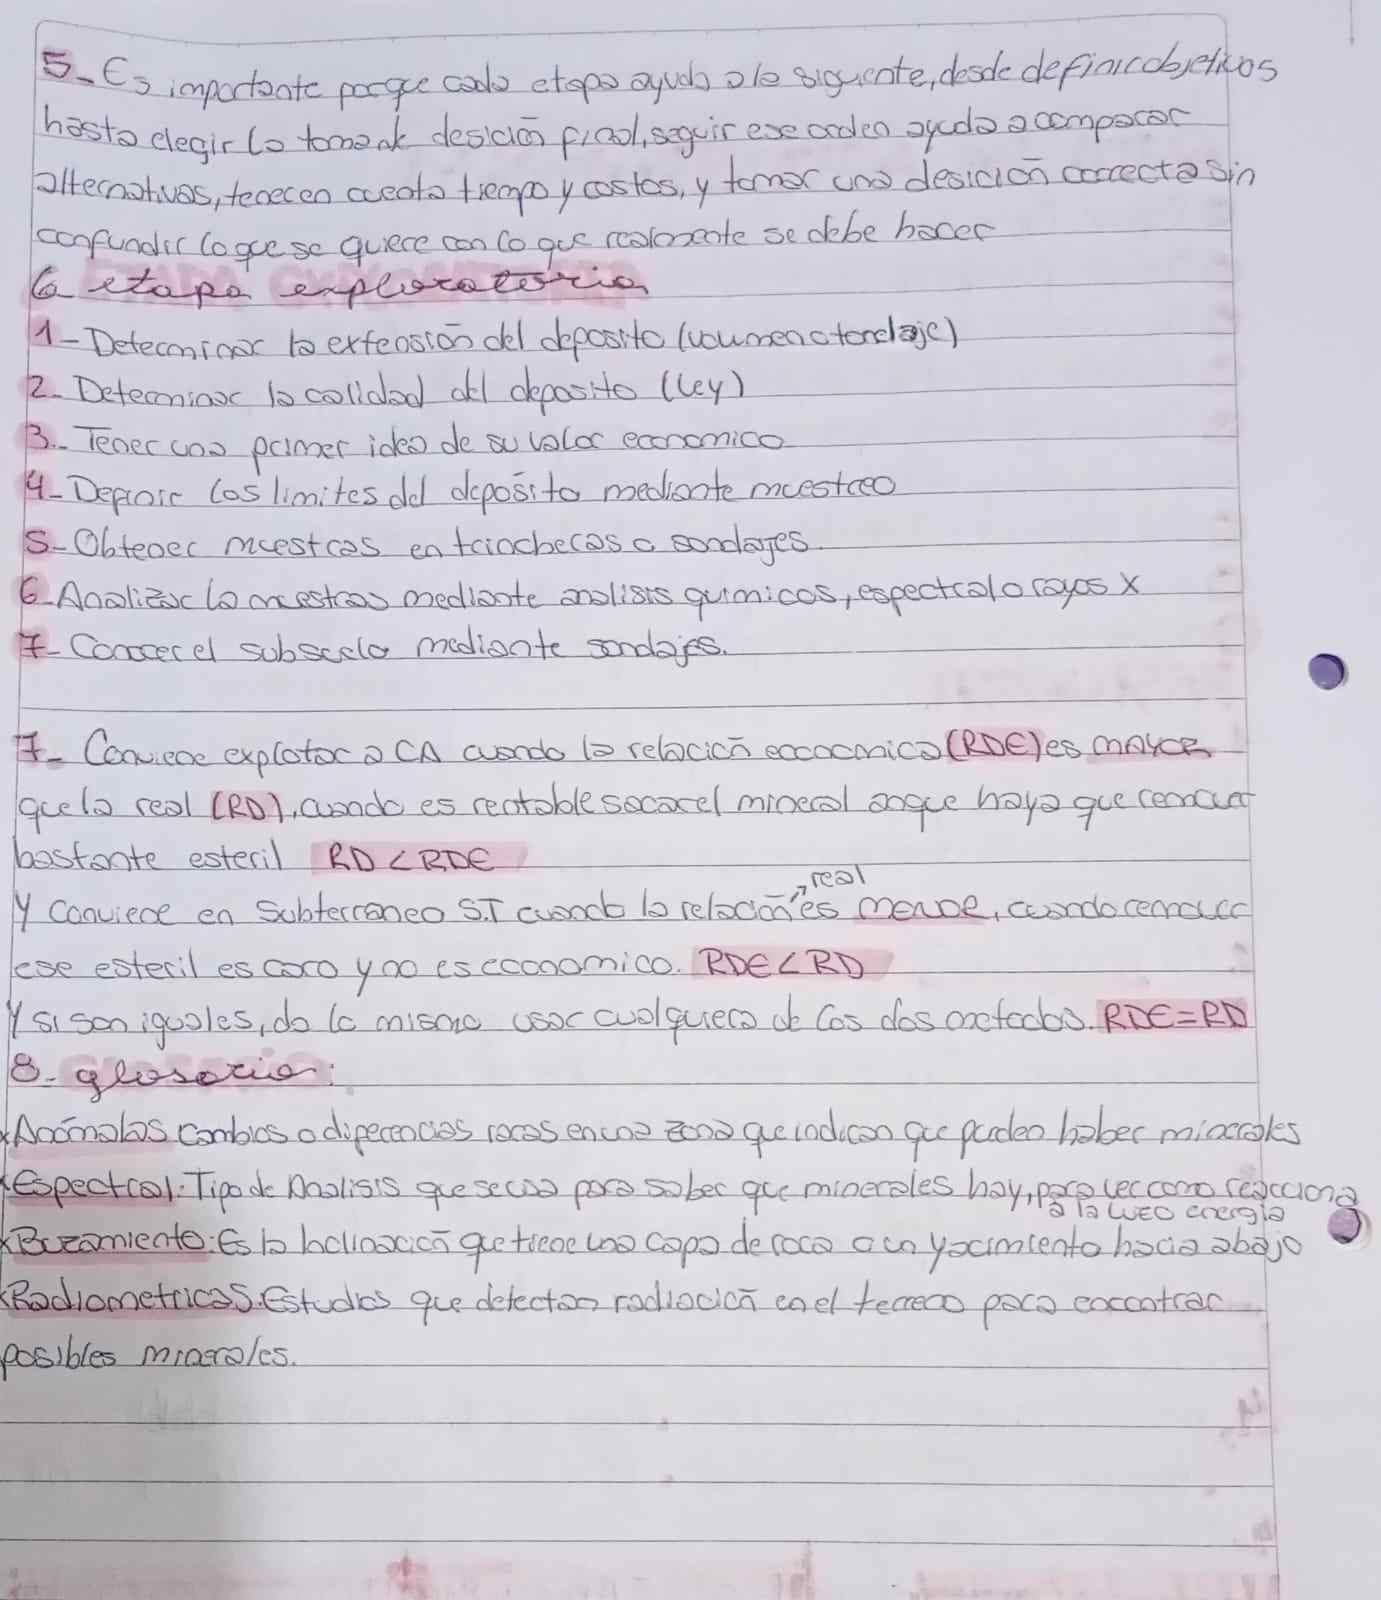 5- Es importante porque cada etapa ayuda a la siguiente, desde definir objetivos
hasta elegir la toma de desición final, seguir ese orden ayuda a comparar
alternativas, tener en cuenta tiempo y costos, y tomar una desición correcta sin
confundir lo que se quiere con lo que realmente se debe hacer
6- etapa exploratoria
1- Determinar la extensión del deposito (volumen o tonelaje)
2- Determinar la calidad del deposito (ley)
3.- Tener una primer idea de su valor economico
4- Definir los limites del deposito mediante muestreo
5- Obtener muestras en trincheras o sondajes.
6- Analizar la muestras mediante analisis quimicos, espectral o rayos X
7- Conocer el subsuelo mediante sondajes.
7- Conviene explotar a CA cuando la relación economica (RDE) es MAYOR
que la real (RD), cuando es rentable sacar el mineral anque haya que remover
bastante esteril RD < RDE
real
Y conviene en Subterraneo S.T cuando la relación es MENOR, cuando remover
ese esteril es caro y no es economico. RDE < RD
Y si son iguales, da lo mismo usar cualquiera de los dos metodos. RDE = RD
8- glosario:
x Anómalas cambios o diferencias raras en una zona que indican que pueden haber minerales
x Espectral: Tipo de Analisis que se usa para saber que minerales hay, para ver como reacciona
a la luz o energia
x Buzamiento: Es la Inclinación que tiene una capa de roca o un yacimiento hacia abajo
x Radiometricas. Estudios que detectan radiación en el terreno para encontrar
posibles minerales.